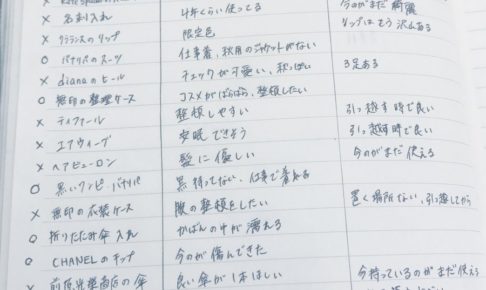 × 名刺入れ 4年くらい使ってる 今のがまだ綺麗
× クラランスのリップ 限定色 リップはもう沢山ある
○ バナリパのスーツ 仕事着、秋用のジャケットがない
× dianaのヒール チェックが可愛い、秋っぽい 3足ある
○ 無印の整理ケース コスメがばらばら、整頓したい
× ティファール 整頓しやすい 引っ越す時で良い
× エアウィーヴ 安眠できそう 引っ越す時で良い
× ヘアビューロン 髪に優しい 今のがまだ使える
○ 黒いワンピ・バナリパ 黒持ってない、仕事で着れる
× 無印の衣装ケース 服の整頓をしたい 置く場所ない、引っ越してから
○ 折りたたみ傘入れ かばんの中が濡れる
○ CHANELのチップ 今のが傷んできた
× 前原光榮商店の傘 良い傘が1本ほしい 今持っているのがまだ使える